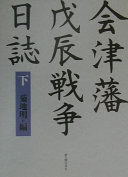 会津藩
戊辰戦争
日誌
下
菊地明・編